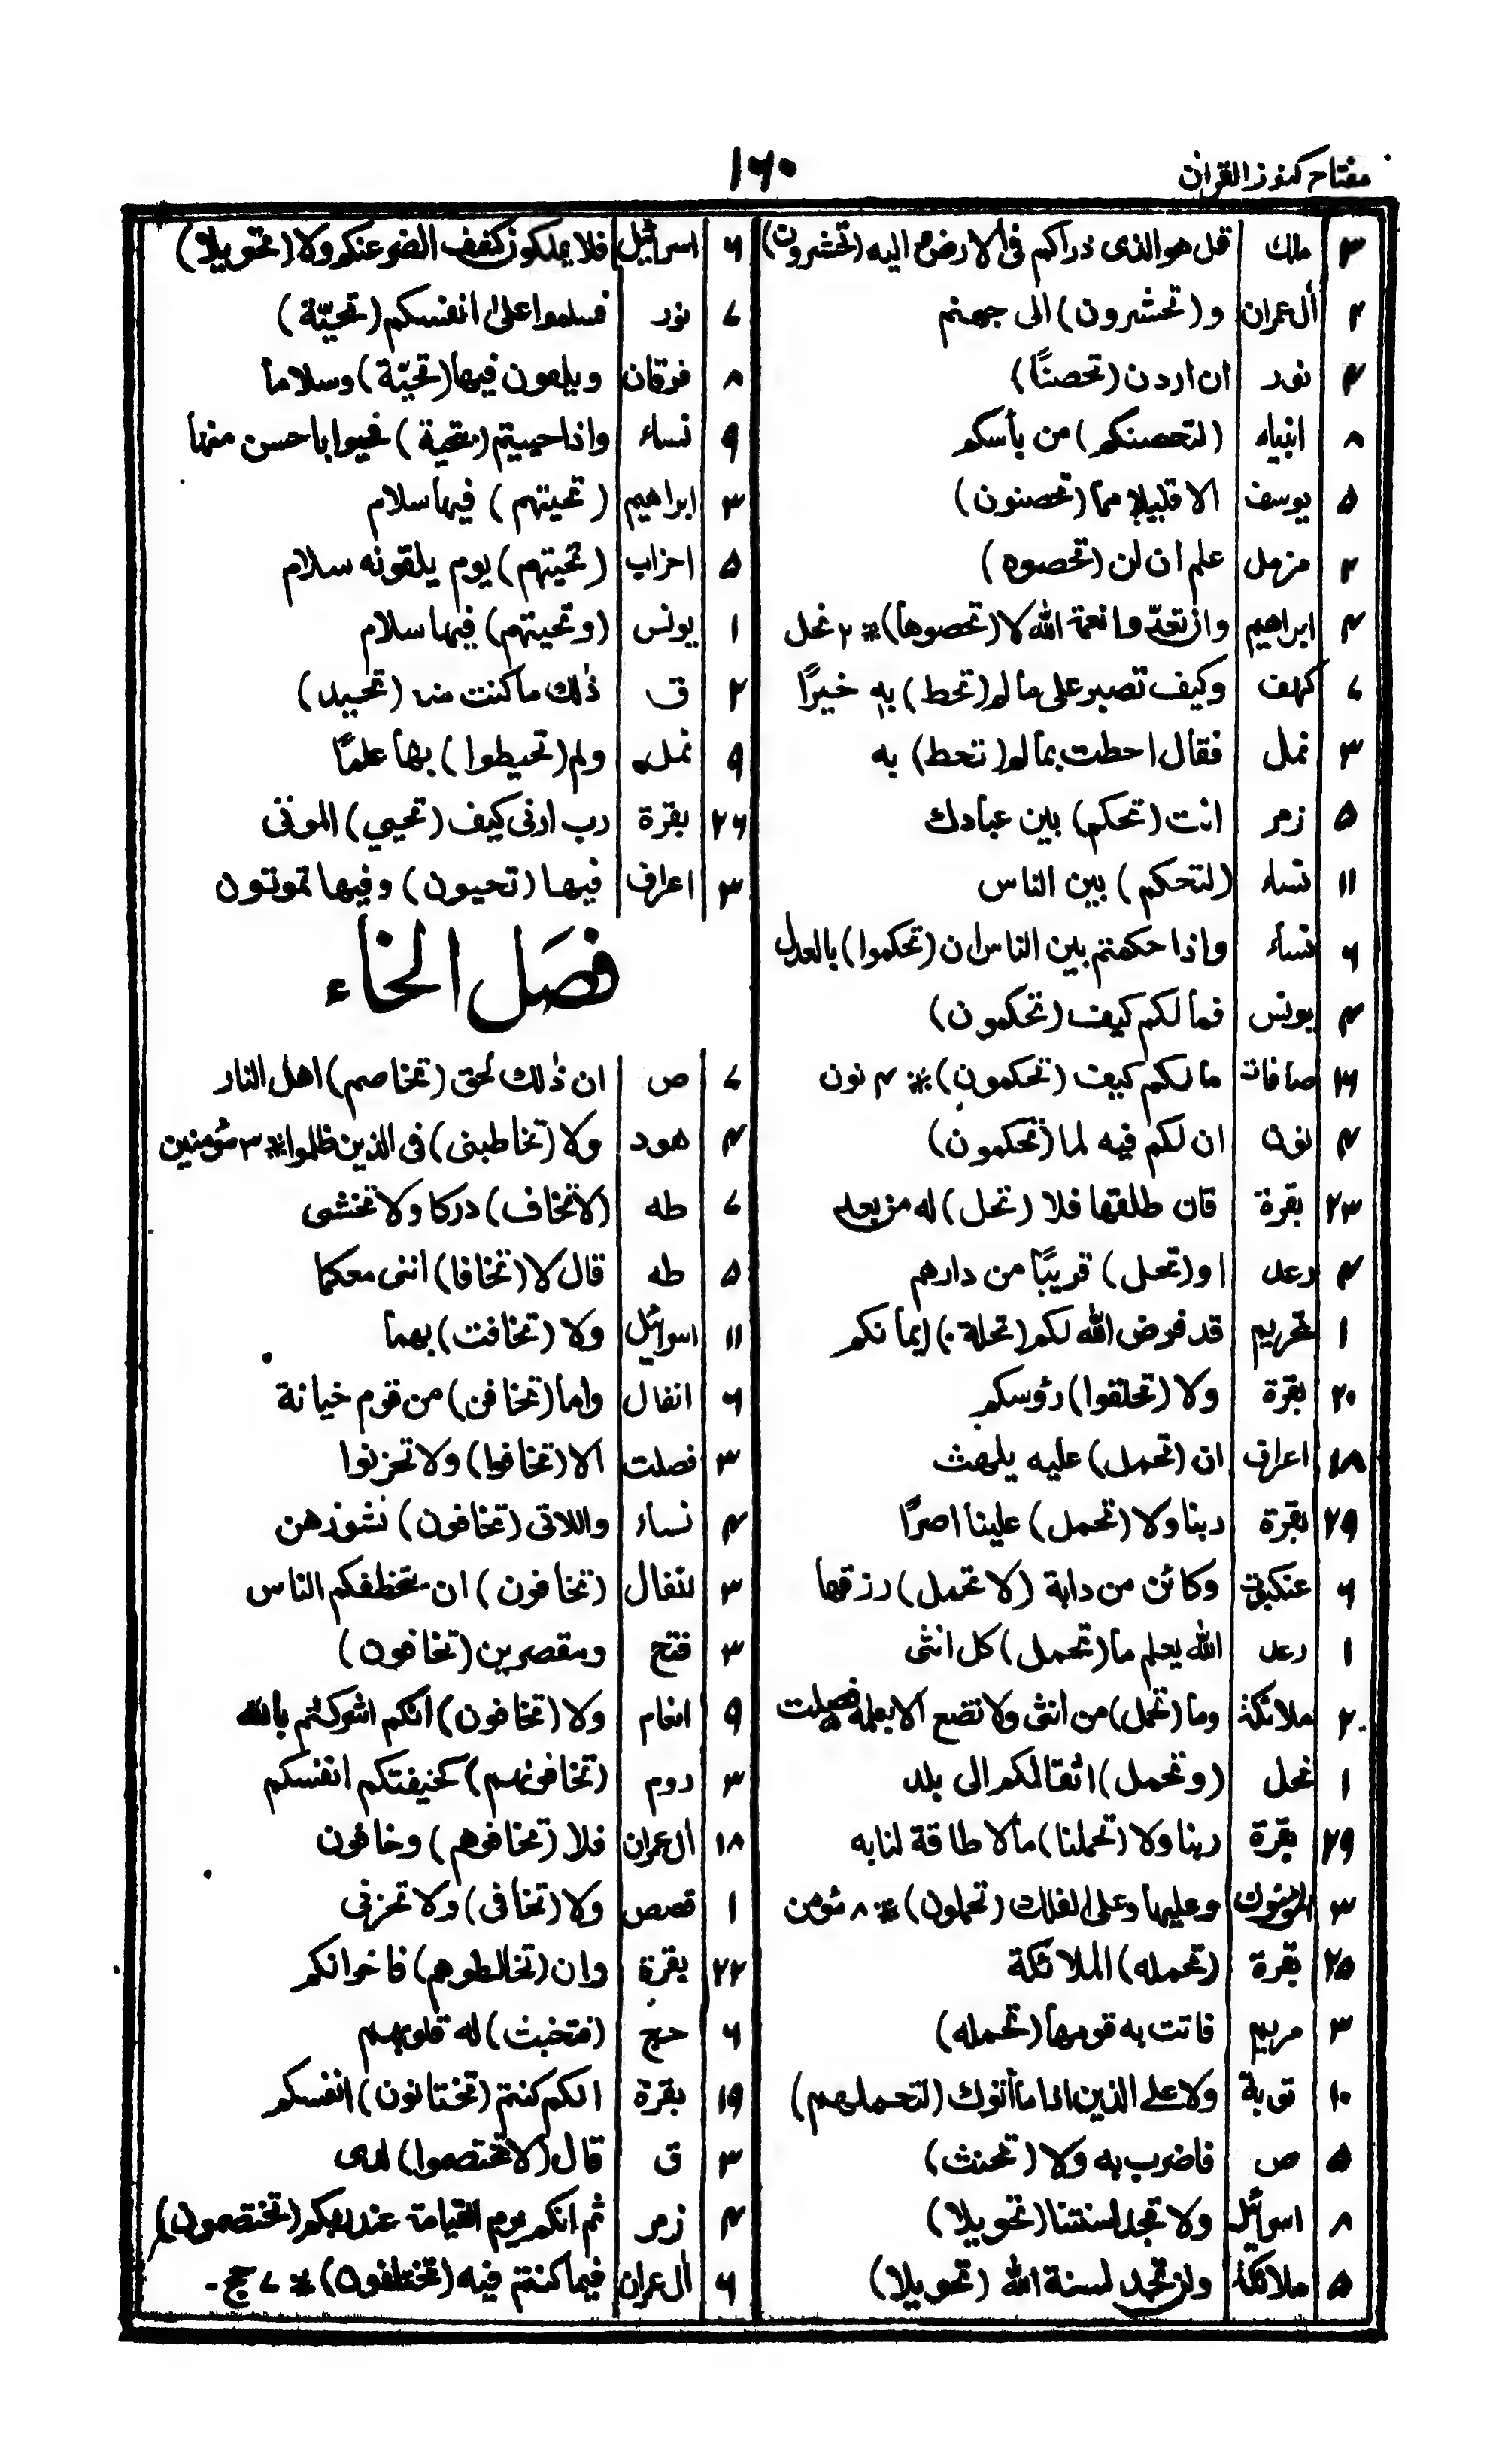 مفتاح کنوز القران
۱۶۰
۳ ملك قل هو الذى ذراكم فى الارض و اليه (تحشرون)
۲ أل عمران و (تحشرون) الى جهنم
۴ نور ان اردن (تحصنًا)
۸ انبياء (لتحصنكم) من بأسكم
۵ يوسف الا قليلا مما (تحصنون)
۲ مزمل علم ان لن (تحصوه)
۴ ابراهيم وان تعدّوا نعمة الله لا (تحصوها) * ۲ نحل
۷ كهف وكيف تصبر على ما لم (تحط) به خبرًا
۳ نمل فقال احطت بما لم (تحط) به
۵ زمر انت (تحكم) بين عبادك
۱۱ نساء (لتحكم) بين الناس
۶ نساء واذا حكمتم بين الناس ان (تحكموا) بالعدل
۴ يونس فما لكم كيف (تحكمون)
۱۶ صافات ما لكم كيف (تحكمون) * ۴ نون
۴ نون ان لكم فيه لما (تحكمون)
۲۳ بقرة فان طلقها فلا (تحل) له من بعد
۴ رعد او (تحل) قريبًا من دارهم
۱ تحريم قد فرض الله لكم (تحلة) ايمانكم
۲۰ بقرة ولا (تحلقوا) رؤسكم
۱۸ اعراف ان (تحمل) عليه يلهث
۲۹ بقرة ربنا ولا (تحمل) علينا اصرًا
۶ عنكبوت وكائن من دابة (لا تحمل) رزقها
۱ رعد الله يعلم ما (تحمل) كل انثى
۲ ملائكة وما (تحمل) من انثى ولا تضع الا بعلمه فصلت
۱ نحل (وتحمل) اثقالكم الى بلد
۲۹ بقرة ربنا ولا (تحملنا) مالا طاقة لنا به
۳ المؤمنون وعليها وعلى الفلك (تحملون) * ۸ مؤمن
۲۵ بقرة (تحمله) الملائكة
۳ مريم فاتت به قومها (تحمله)
۱۰ توبة ولا على الذين اذا ما أتوك (لتحملهم)
۵ ص فاضرب به ولا (تحنث)
۸ اسرائيل ولا تجد لسنتنا (تحويلا)
۵ ملائكة ولن تجد لسنة الله (تحويلا)
۶ اسرائيل فلا يملكون كشف الضر عنكم ولا (تحويلا)
۷ نور فسلموا على انفسكم (تحيّة)
۸ فرقان ويلقون فيها (تحيّة) وسلاما
۹ نساء واذا حييتم (بتحية) فحيوا باحسن منها
۳ ابراهيم (تحيتهم) فيها سلام
۵ احزاب (تحيتهم) يوم يلقونه سلام
۱ يونس (وتحيتهم) فيها سلام
۲ ق ذٰلك ما كنت منه (تحيد)
۹ نمل ولم (تحيطوا) بها علمًا
۲۶ بقرة رب ارنى كيف (تحيي) الموتى
۳ اعراف فيها (تحيون) وفيها تموتون
فصَل الخاء
۷ ص ان ذٰلك لحق (تخاصم) اهل النار
۴ هود ولا (تخاطبنى) فى الذين ظلموا * ۳ مؤمنين
۷ طه (لا تخاف) دركا ولا تخشى
۵ طه قال لا (تخافا) اننى معكما
۱۱ اسرائيل ولا (تخافت) بها
۶ انفال واما (تخافن) من قوم خيانة
۳ فصلت الا (تخافوا) ولا تحزنوا
۴ نساء واللاتى (تخافون) نشوزهن
۳ انفال (تخافون) ان يتخطفكم الناس
۳ فتح ومقصرين (تخافون)
۹ انعام ولا (تخافون) انكم اشركتم بالله
۳ روم (تخافونهم) كخيفتكم انفسكم
۱۸ أل عمران فلا (تخافوهم) وخافون
۱ قصص ولا (تخافى) ولا تحزنى
۲۲ بقرة وان (تخالطوهم) فاخوانكم
۶ حج (فتخبث) له قلوبهم
۱۹ بقرة انكم كنتم (تختانون) انفسكم
۳ ق قال (لا تختصموا) لدى
۴ زمر ثم انكم يوم القيامة عند ربكم (تختصمون)
۶ أل عمران فيما كنتم فيه (تختلفون) * ۷ حج -